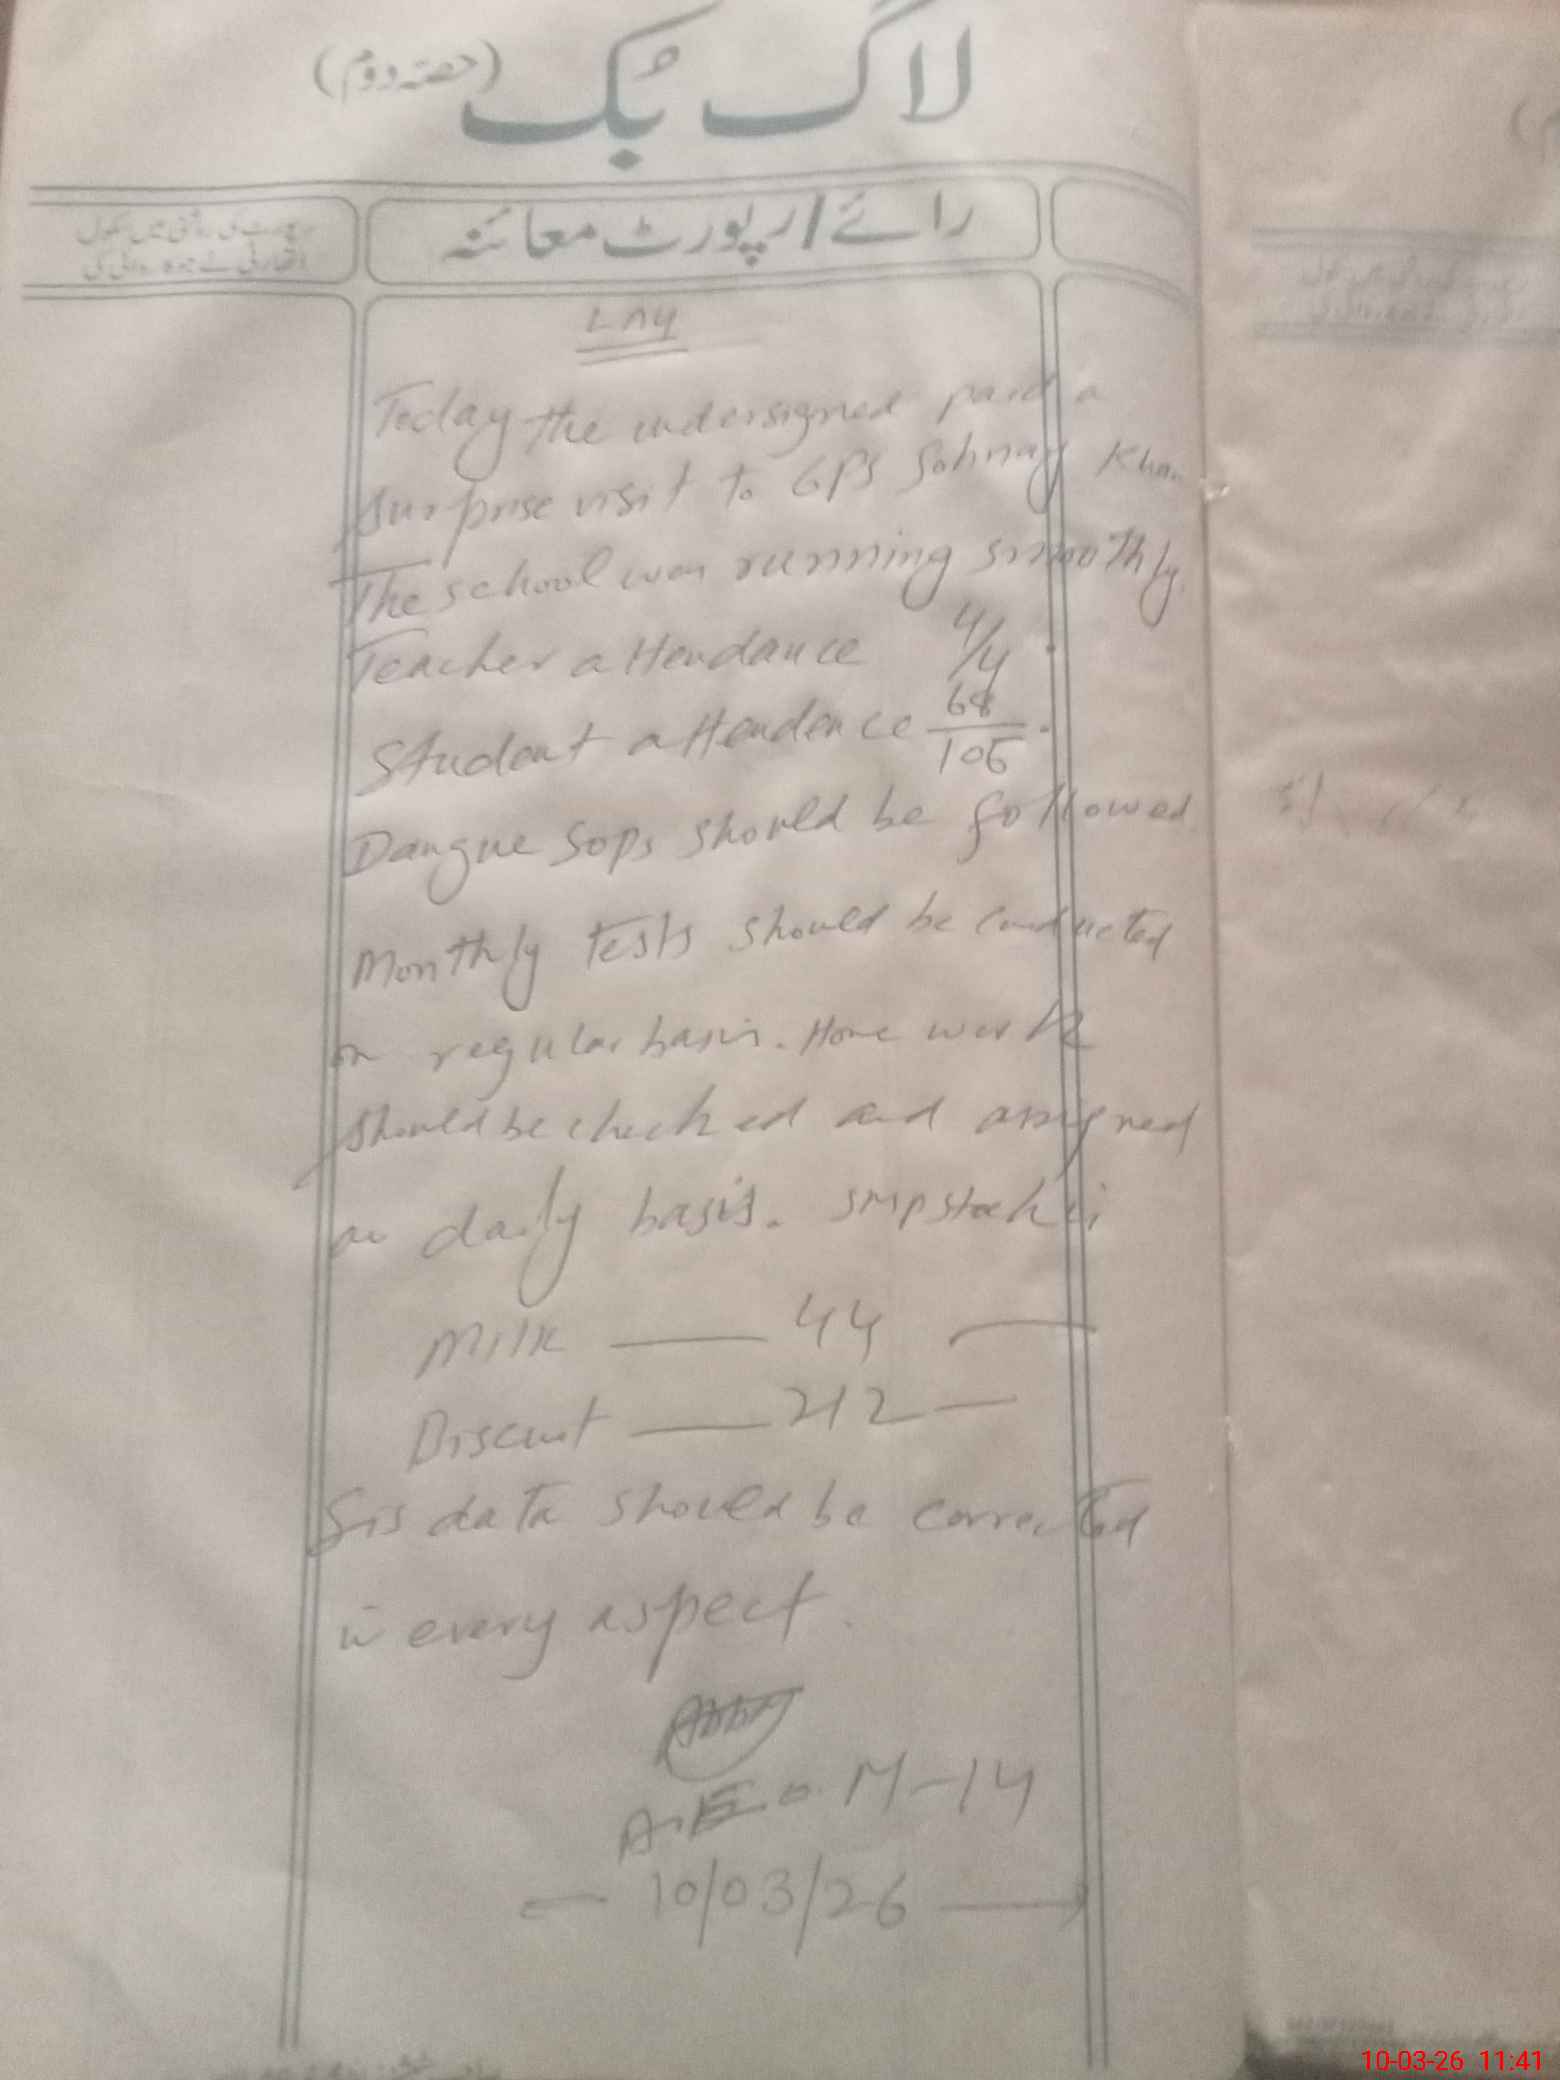 لاگ بک (حصہ دوم)
رائے / رپورٹ معائنہ
LAY
Today the undersigned paid a
surprise visit to GPS Sohnay Khan
The school was running smoothly.
Teacher attendance 4/4.
Student attendence 68/105.
Dangue Sops should be followed.
Monthly Tests should be conducted
on regular basis. Home work
should be checked and assigned
on daily basis. SMP stock is
Milk — 44 —
Biscuit — 212 —
Sis data should be corrected
in every aspect.
A.E.O M-14
— 10/03/26 —
10-03-26 11:41